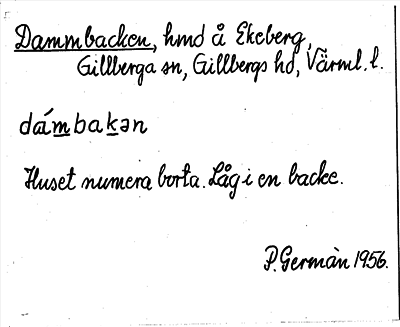 Dammbacken, hmd å Ekeberg,
Gillberga sn, Gillbergs hd, Värml. l.
dámbakən
Huset numera borta. Låg i en backe.
P. Germàn 1956.